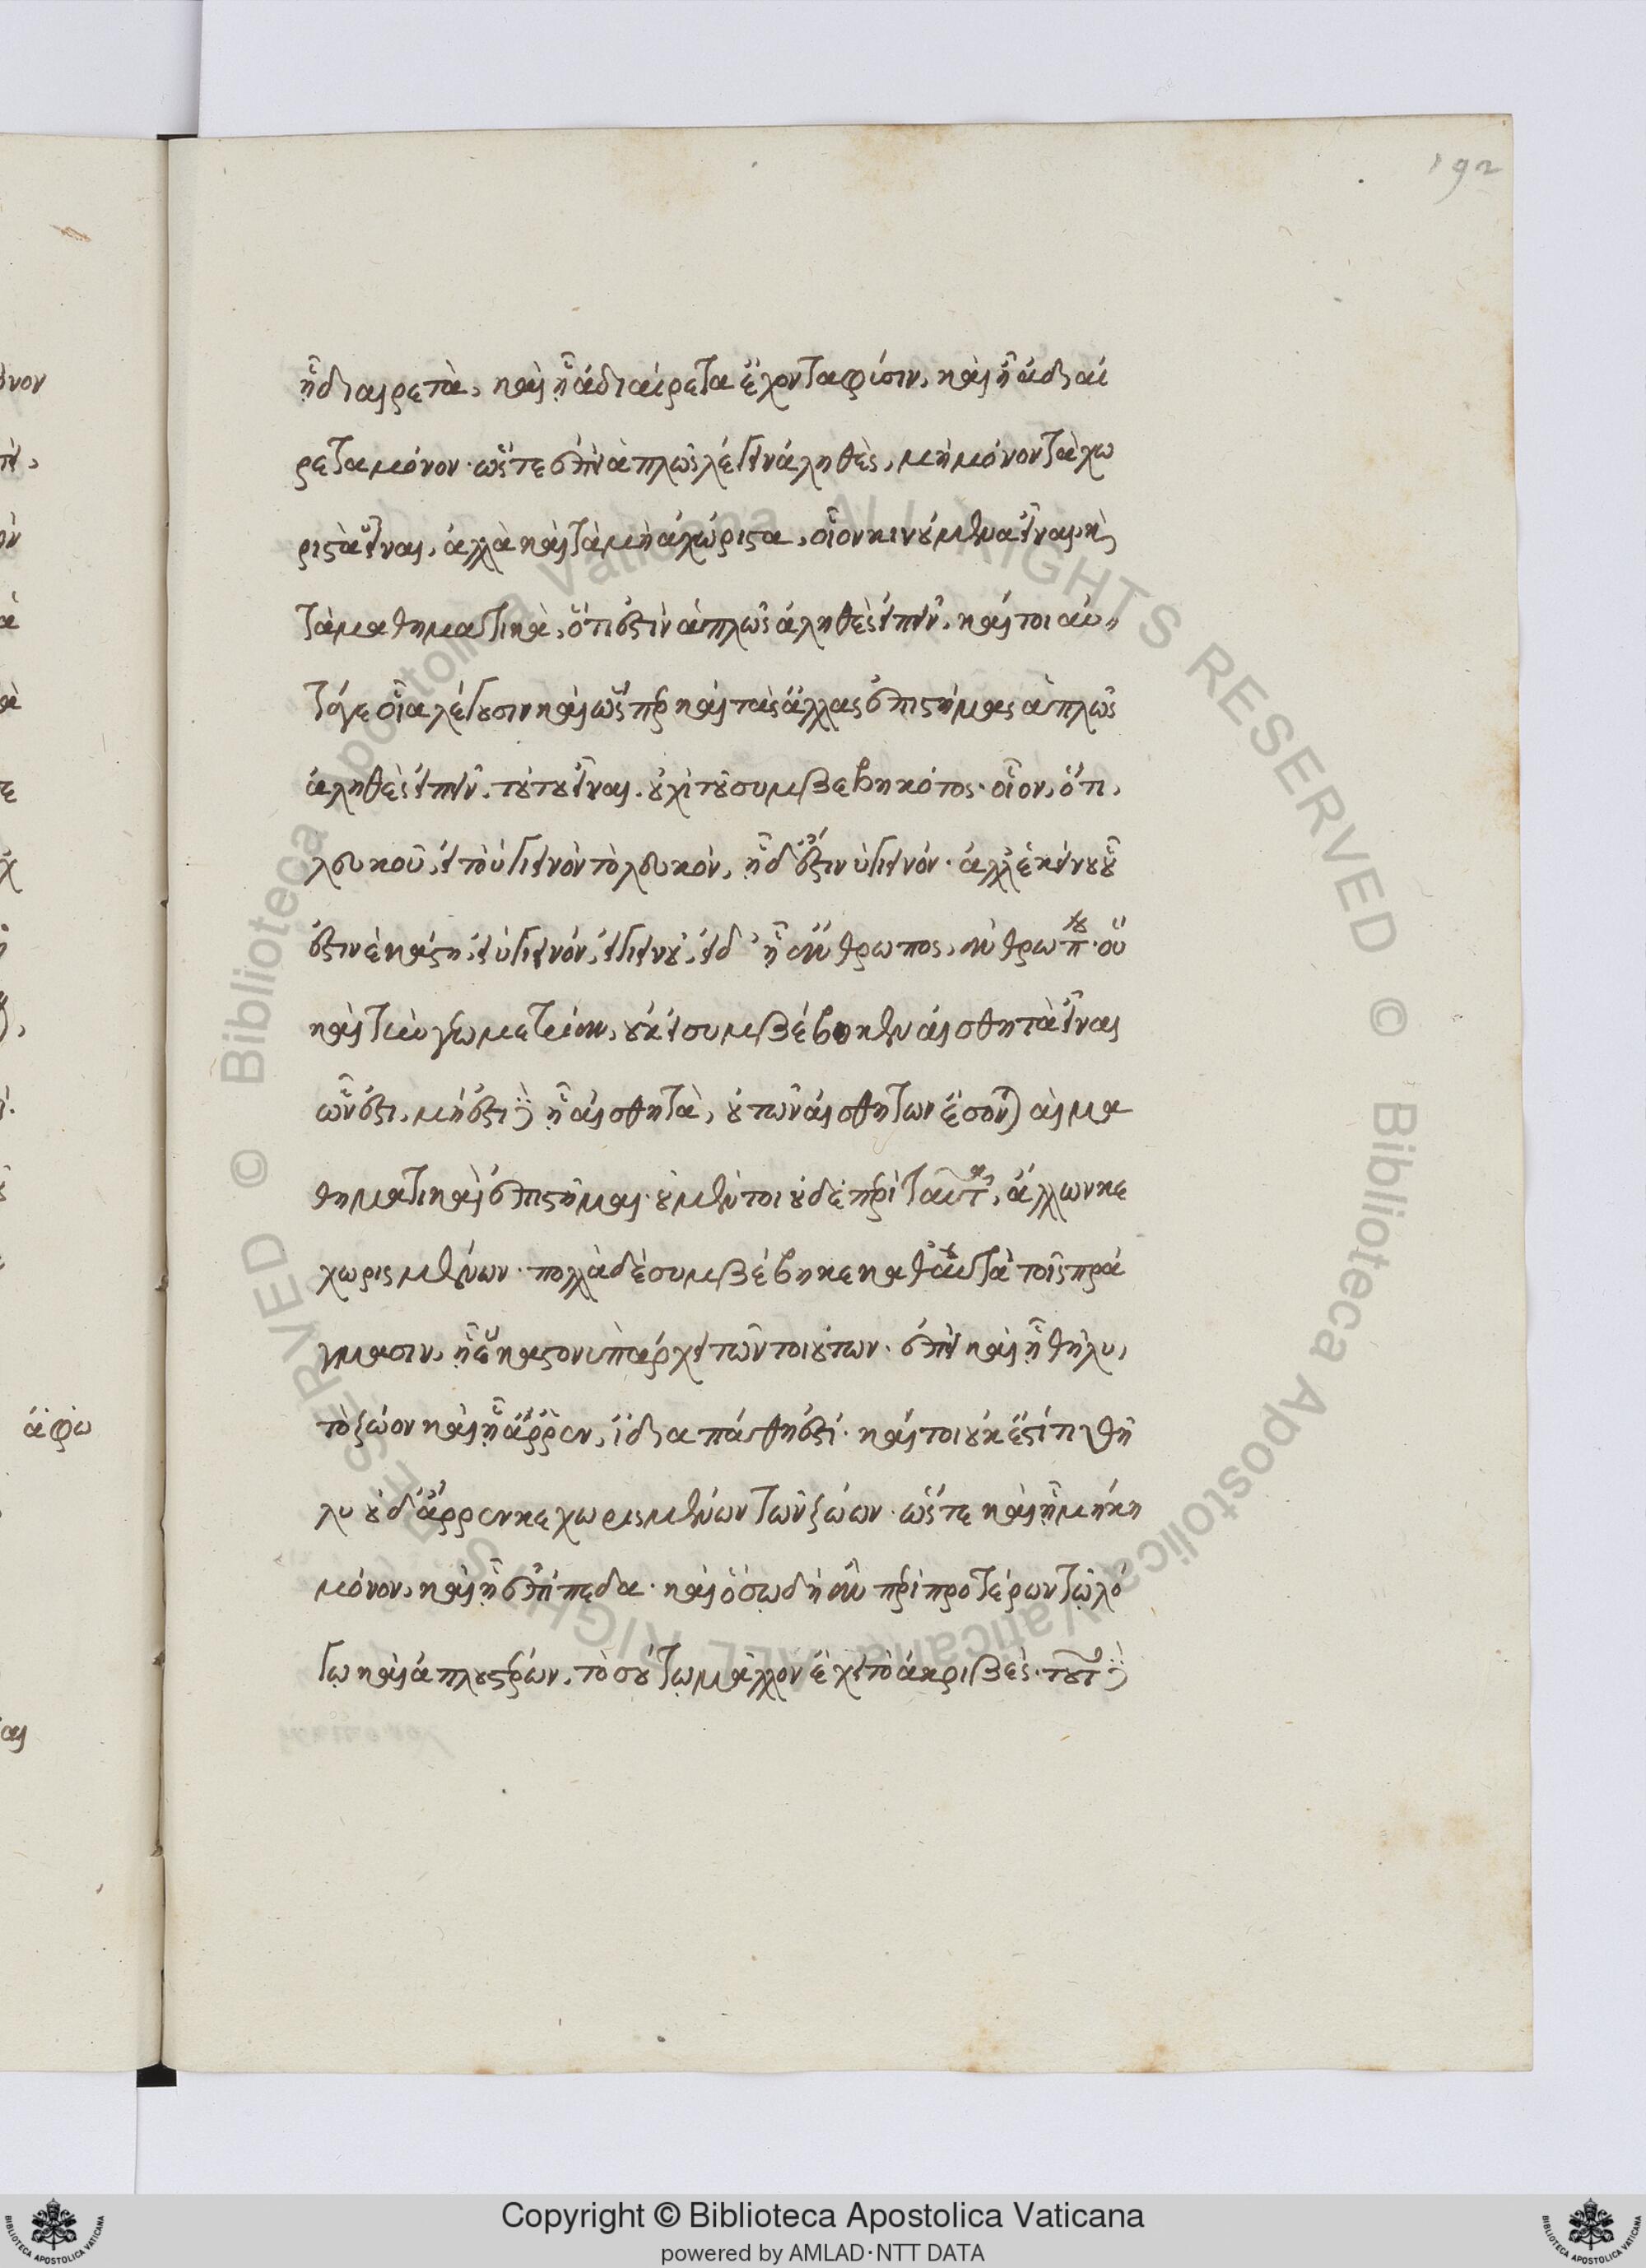 192
ᾗ διαιρετὰ, καὶ ᾗ ἀδιαίρετα ἔχοντα φύσιν, καὶ ᾗ ἀδιαί
ρετα μόνον· ὥστε ἐπεὶ ἁπλῶς λέγειν ἀληθὲς, μὴ μόνον τὰ χω
ριστὰ εἶναι, ἀλλὰ καὶ τὰ μὴ ἀχώριστα, οἷον κινούμενα εἶναι, καὶ
τὰ μαθηματικὰ, ὅτι ἐστὶν ἁπλῶς ἀληθὲς εἰπεῖν, καί τοι αὐ
τά γε οἷα λέγουσιν καὶ ὥσπερ καὶ τὰς ἄλλας ἐπιστήμας ἁπλῶς
ἀληθὲς εἰπεῖν. τούτου εἶναι. οὐχὶ τοῦ συμβεβηκότος· οἷον, ὅτι,
λευκοῦ, εἰ τὸ ὑγιεινὸν τὸ λευκὸν, ἡ δ' ἔστιν ὑγιεινόν· ἀλλ' ἐκείνου οὗ
ἐστιν ἑκάστη, εἰ ὑγιεινόν, εἰ ὑγιεινοῦ, εἰ δ' ᾗ ἄνθρωπος, ἀνθρώπου· οὕ
καὶ τὴν γεωμετρίαν, οὐκ εἰ συμβέβηκεν αἰσθητὰ εἶναι
ὧν ἐστι, μὴ ἔστι δὲ ᾗ αἰσθητὰ, οὐ τῶν αἰσθητῶν ἔσονται αἱ μα
θηματικαὶ ἐπιστῆμαι· οὐ μέντοι οὐδὲ περὶ ταῦτα, ἄλλων κε
χωρισμένων· πολλὰ δὲ συμβέβηκε καθ' αὑτὰ τοῖς πρά
γμασιν, ᾗ ἕκαστον ὑπάρχει τῶν τοιούτων· ἐπεὶ καὶ ᾗ θῆλυ,
τὸ ζῶον καὶ ᾗ ἄρρεν, ἴδια πάθη ἐστί· καί τοι οὐκ ἔστί τι θῆ
λυ οὐδ' ἄρρεν κεχωρισμένων τῶν ζώων· ὥστε καὶ ᾗ μήκη
μόνον, καὶ ᾗ ἐπίπεδα· καὶ ὅσῳ δὴ ἂν περὶ προτέρων τῷ λό
γῳ καὶ ἁπλουστέρων, τοσούτῳ μᾶλλον ἔχει τὸ ἀκριβές· τοῦτο δὲ
Copyright © Biblioteca Apostolica Vaticana
powered by AMLAD·NTT DATA